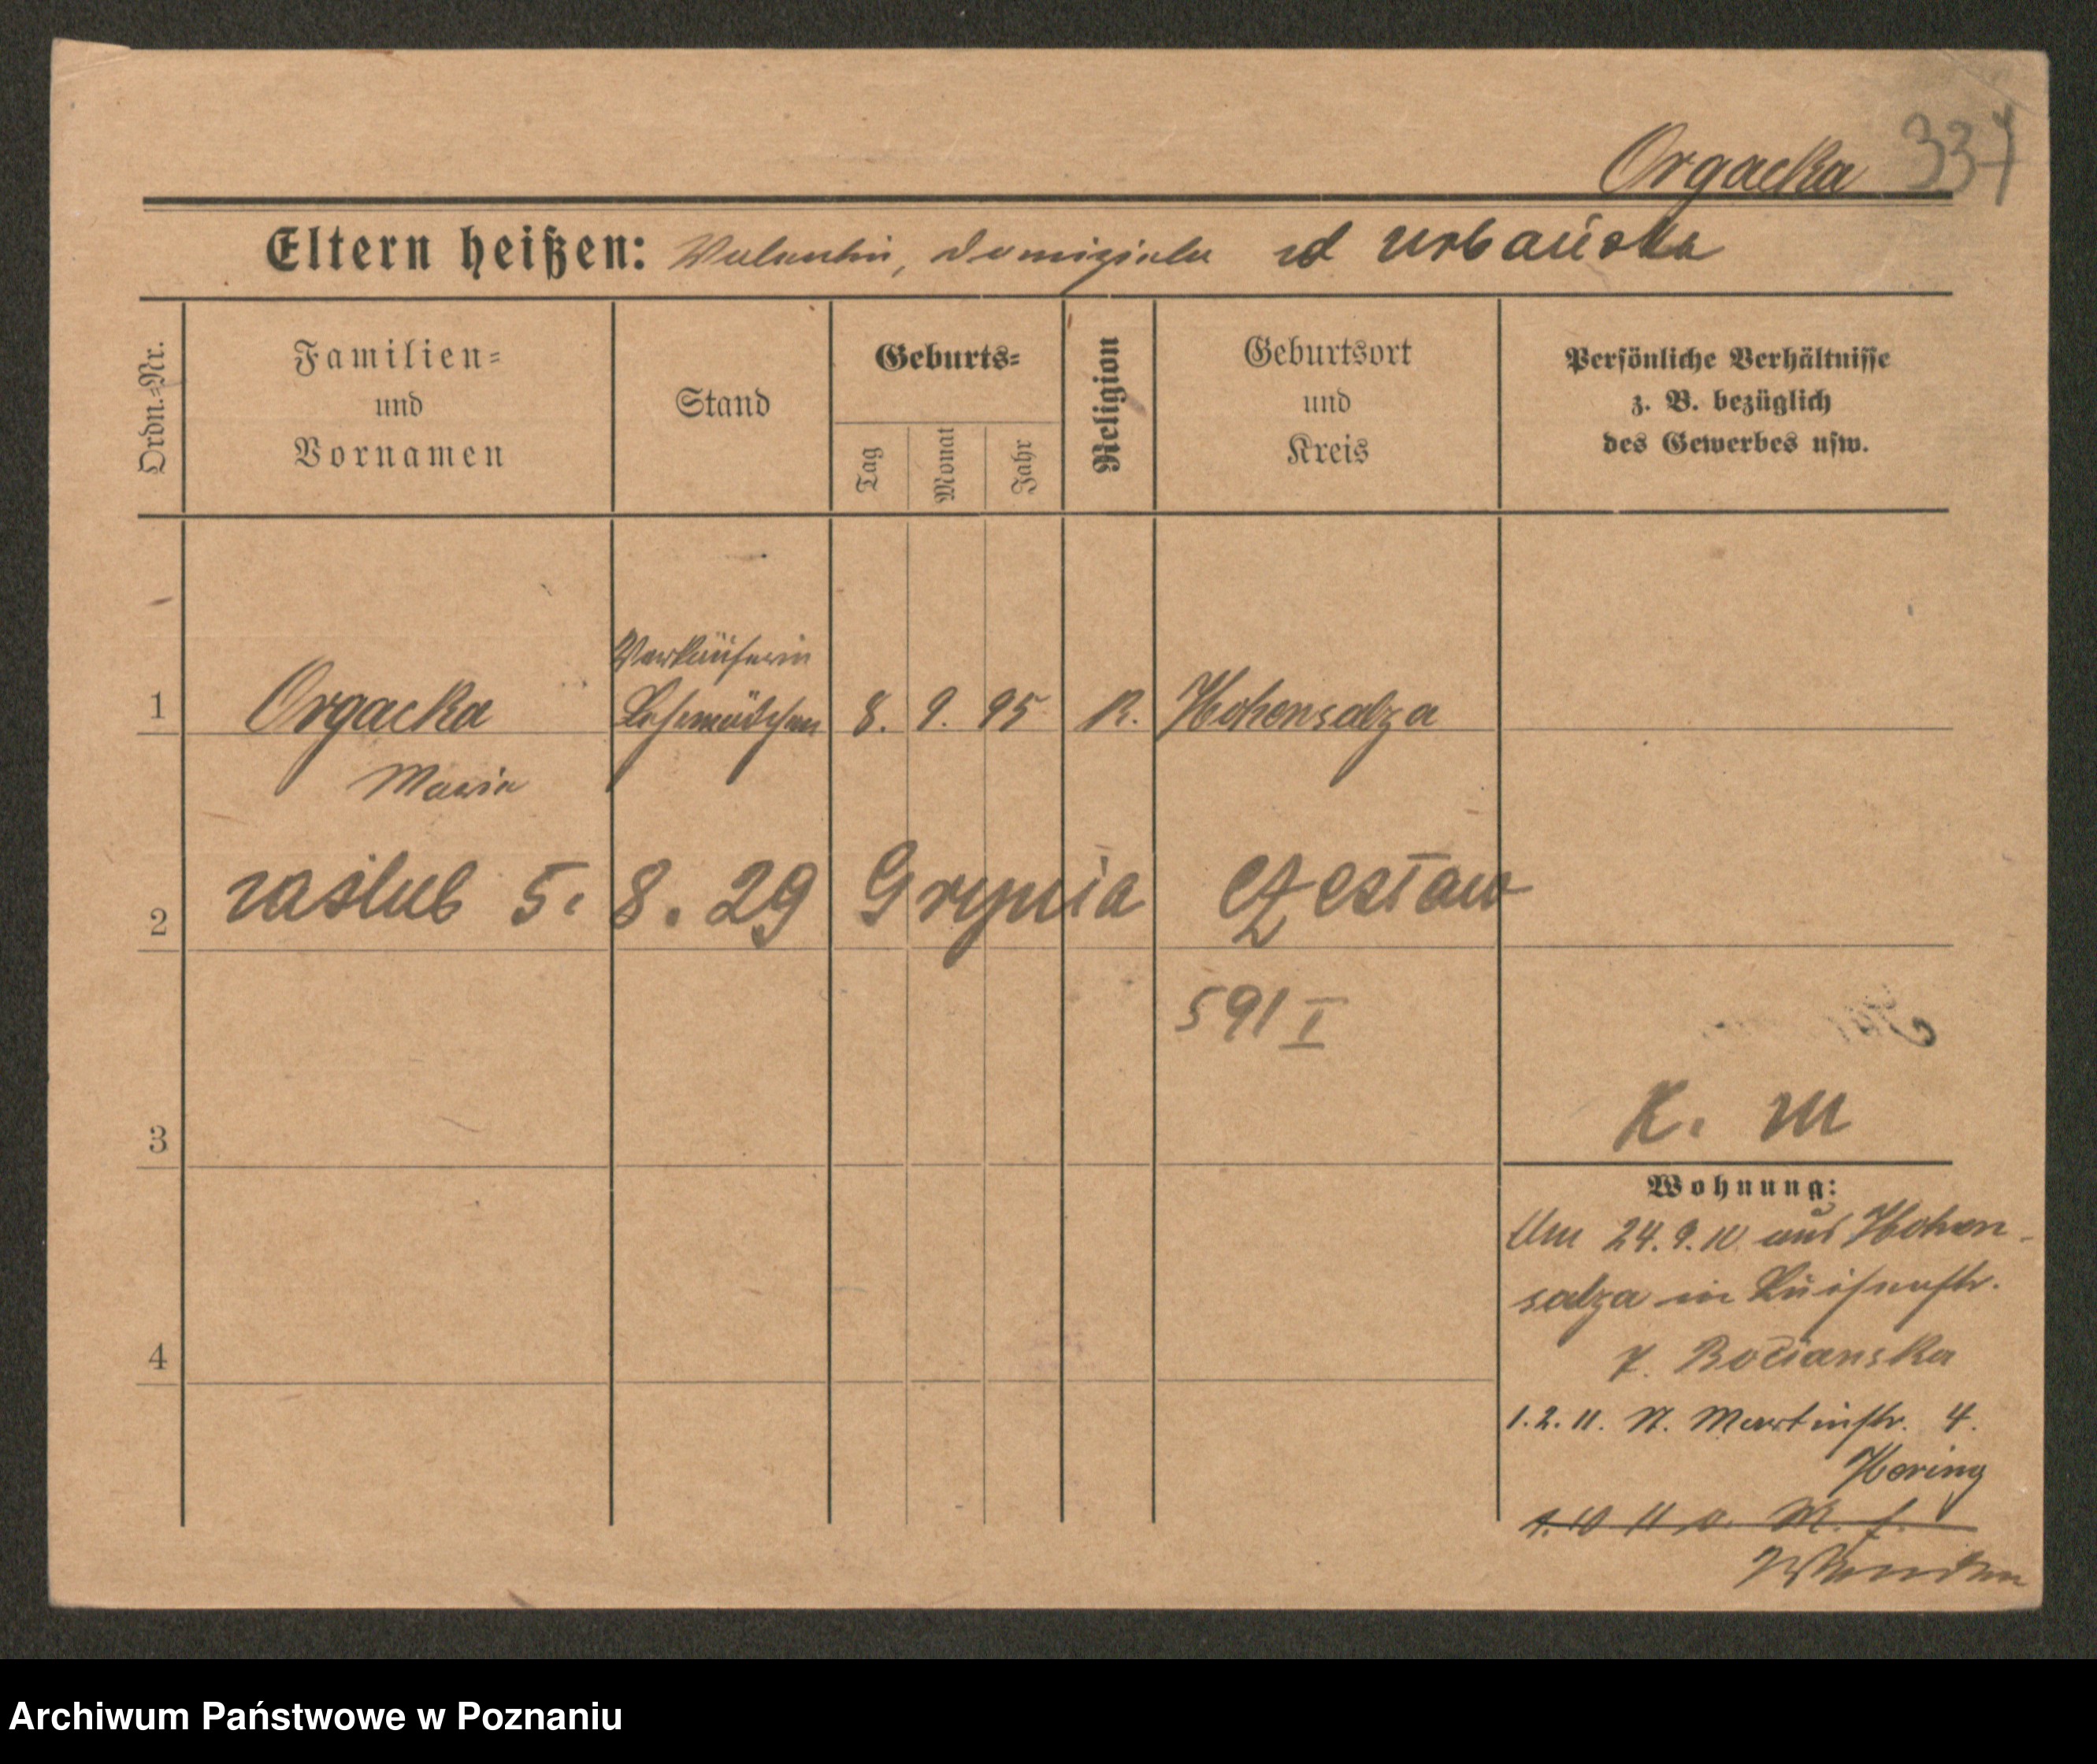 Orgacka 337
Eltern heißen: Valentin, Domizialа zd Urbańska
Ordn.-Nr.
Familien-
und
Vornamen
Stand
Geburts-
Tag
Monat
Jahr
Religion
Geburtsort
und
Kreis
Persönliche Verhältnisse
z. B. bezüglich
des Gewerbes usw.
Verkäuferin
1 Orgacka Lehrmädchen 8. 9. 95 R. Hohensalza
Maria
2 zaślub 5. 8. 29 Grynia Czesław
591 I
3
K. M
Wohnung:
Am 24.9.10 aus Hohen-
salza in Luisenstr.
7. Bocianska
4
1.2.11. St. Martinstr. 4.
Hering
1.10 11 M. f.